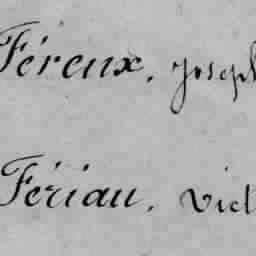 Féreux. Joseph
Fériau. Vict